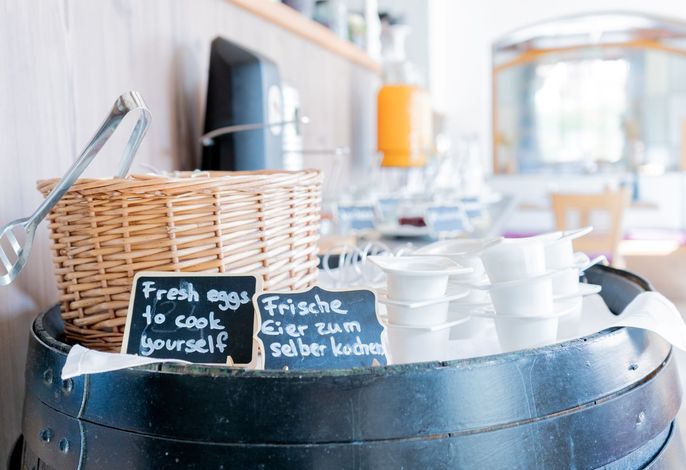 Fresh eggs
to cook
yourself
Frische
Eier zum
selber kochen